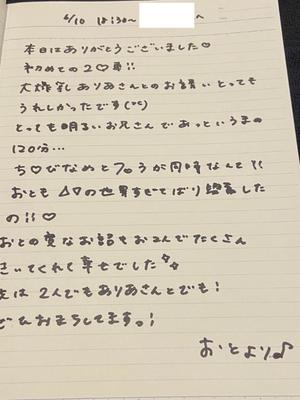 6/10 18:30~ へ
本日はありがとうございました♡
初めての2○車!!
大爆乳ありあさんとのお誘いとっても
うれしかったです(°°)
とっても明るいお兄さんであっというまの
120分…
ち○びなめとフ○うが同時なんて!!
おとも の世界すぎてばり堪能した
の!!♡
おとの変なお話もおこんでたくさん
きいてくれて幸せでした
次は2人でもありあさんとでも!
ぜひおまちしてますっ!
おとより♪